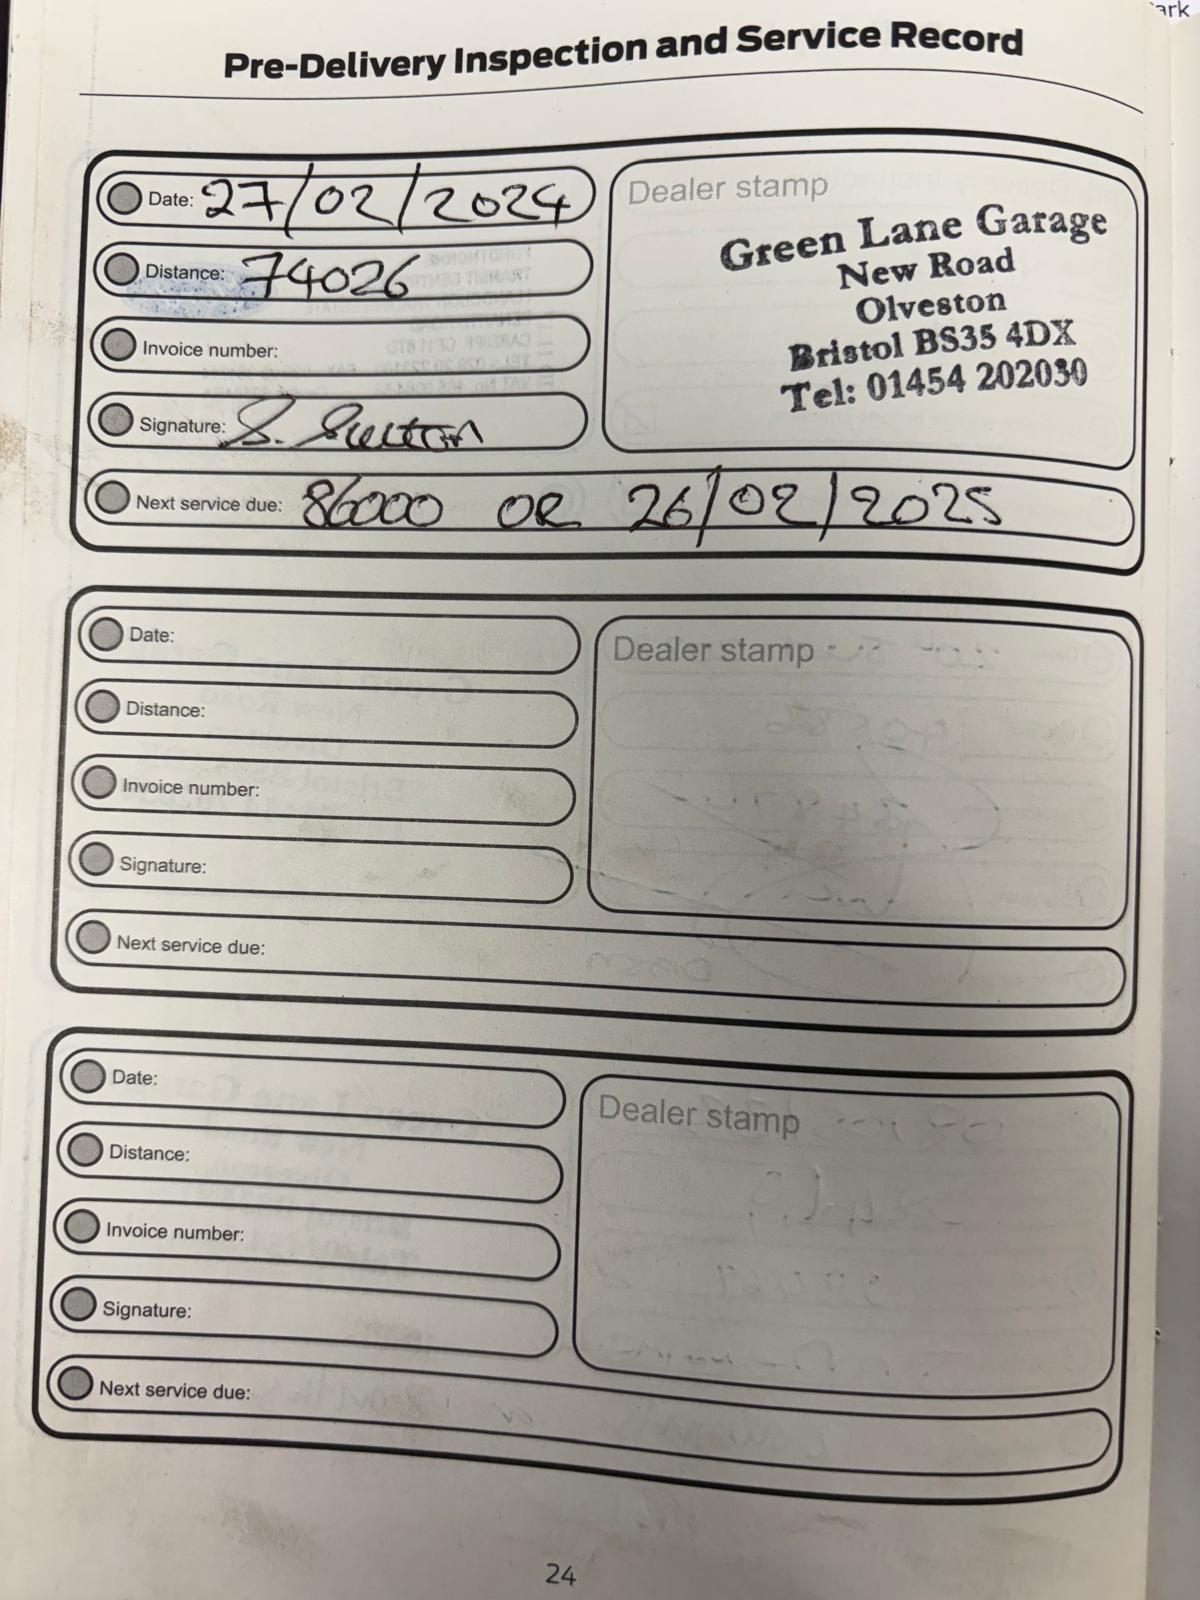 ark
Pre-Delivery Inspection and Service Record
Date: 27/02/2024
Distance: 74026
Invoice number:
Signature: S. Sutton
Next service due: 86000 OR 26/02/2025
Dealer stamp
Green Lane Garage
New Road
Olveston
Bristol BS35 4DX
Tel: 01454 202030
Date:
Distance:
Invoice number:
Signature:
Next service due:
Dealer stamp
Date:
Distance:
Invoice number:
Signature:
Next service due:
Dealer stamp
24